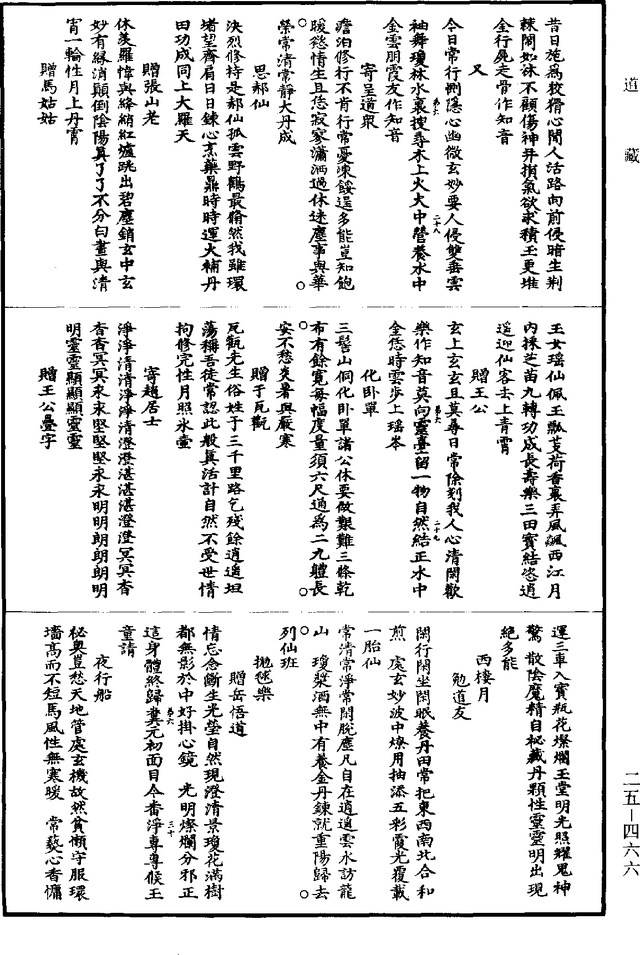 道藏
昔日施為狡猾心閒人活路向前侵暗生荆
棘鬧如秫不顧傷神并損氣欲求積玉更堆
金行屍走骨作知音
又
今日常行惻隱心幽微玄妙要人侵雙垂雲
袖舞瓊林水裏搜尋木上火火中營養水中
金雲朋霞友作知音
寄呈道衆
澹泊修行不肯行常憂凍餒逞多能豈知飽
暖慾情生且恁寂寥瀟洒過休迷塵事與華
榮常清常靜大丹成
思郝仙
決烈修持是郝仙孤雲野鶴最翛然我雖環
堵望齊肩日日鍊心烹藥鼎時時運火補丹
田功成同上大羅天
贈張山老
休羨羅幃與絳綃紅爐跳出碧塵銷玄中玄
妙有緣消顛倒陰陽真了了不分白晝與清
宵一輪性月上丹霄
贈馬姑姑
玉女瑶仙佩玉瓢芰荷香裏弄風飆西江月
内採芝苗九轉功成長壽樂三田寶結恣逍
遥迎仙客去上青霄
贈王公
玄上玄玄且莫尋日常除剗我人心清閑歡
樂作知音莫向靈臺留一物自然結正水中
金恁時雲步上瑶岑
化卧單
三髻山侗化卧單諸公休要做艱難三條乾
布有餘寬每幅度量須六尺通為二九軆長
安不愁炎暑與嚴寒
贈于瓦觀
瓦觀先生俗姓于三千里路乞殘餘逍遥坦
蕩稱吾徒常認此般真活計自然不受世情
拘修完性月照氷壺
寄趙居士
淨淨清清淨淨清澄澄湛湛湛澄澄冥冥杳
杳杳冥冥永永堅堅堅永永明明朗朗朗明
明靈靈顯顯顯靈靈
贈王公疊字
運三車入寶瓶花燦爛玉堂明光照耀鬼神
驚 散陰魔精自祕藏丹顆性靈靈明出現
絶多能
西樓月
勉道友
閑行閑坐閑眠養丹田常把東西南北合和
煎 處玄妙波中燎用抽添五彩霞光覆載
一胎仙
常清常淨常閑脱塵凡自在逍遥雲水訪龍
山 瓊漿酒無中有養金丹鍊就重陽歸去
列仙班
抛毬樂
贈岳悟道
情忘念斷生光瑩自然現澄清景瓊花滿樹
都無影於中好掛心鏡 光明燦爛分邪正
這身體終歸糞元初面目今番淨專專候王
童請
夜行船
祕奥豈愁天地管處玄機故然貧懶守服環
墻高而不短馬風性無寒暖 常藝心香慵
二五—四六六